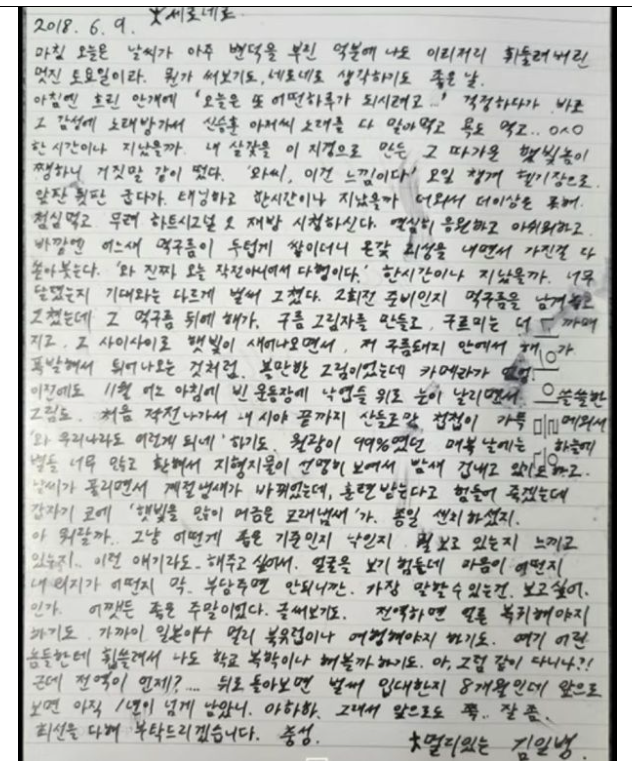 2018. 6. 9. 세로네로.
마침 오늘은 날씨가 아주 변덕을 부린 덕분에 나도 이리저리 휘둘려버린
멋진 토요일이라. 뭔가 써보기도, 네로네로 생각하기도 좋은 날.
아침엔 흐린 안개에 '오늘은 또 어떤하루가 되시려고...' 걱정하다가 바로
그 감성에 노래방가서 신승훈 아저씨 노래를 다 말아먹고 욕도 먹고.. ㅇㅅㅇ
한 시간이나 지났을까. 내 살갗을 이 지경으로 만든 그 따가운 햇빛놈이
쨍하니 거짓말 같이 떴다. '와씨, 이건 느낌이다' 오일 챙겨 헬기장으로.
앞판 뒷판 굽다가. 태닝하고 한시간이나 지났을까 더워서 더이상은 못해.
점심먹고 무려 하트시그널 2 재방 시청하신다. 열심히 응원하고 아쉬워하고
바깥엔 어느새 먹구름이 두텁게 쌓이더니 온갖 괴성을 내면서 가진걸 다
쏟아붓는다. '와 진짜 오늘 작전아니여서 다행이다.' 한시간이나 지났을까. 너무
달랬는지 기대와는 다르게 벌써 그쳤다. 2회전 준비인지 먹구름을 남겨놓고
그쳤는데 그 먹구름 뒤에 해가. 구름 그림자를 만들고, 구르미는 더 까매
지고. 그 사이사이로 햇빛이 새어나오면서, 저 구름돼지 안에서 해가
폭발해서 튀어나오는 것처럼. 볼만한 그림이었는데 카메라가 없엉
이전에도 11월 어느 아침에 빈 운동장에 낙엽들 위로 눈이 날리면서 쓸쓸한
그림도. 처음 작전나가서 내 시야 끝까지 산들로만 첩첩이 가득 메워서
'와 우리나라도 이런게 되네' 하기도. 월광이 99%였던 매복 날에는 하늘에
별들 너무 많고 환해서 지형지물이 선명히 보여서 밤새 겁내고 있기도 하고.
날씨가 풀리면서 계절냄새가 바뀌었는데, 훈련받는다고 힘들어 죽겠는데
갑자기 코에 '햇빛을 많이 머금은 모래냄새'가. 종일 센치하셨지.
아 뭐랄까.. 그냥 어떤게 좋은 기준인지 낙인지 뭘 보고 있는지 느끼고
있는지.. 이런 얘기라도. 해주고 싶어서. 얼굴을 보기 힘든데 마음이 어떤지
내 의지가 어떤지 막. 부담주면 안되니깐. 가장 말할 수 있는건. 보고싶어.
인가. 어쨌든 좋은 주말이었다. 글써보기도. 전역하면 얼른 복귀해야지
하기도. 가까이 일본이나 멀리 북유럽이나 여행해야지 하기도. 여기 어린
놈들한테 휩쓸려서 나도 학교 복학이나 해볼까 하기도. 아, 그럼 같이 다니나?!
근데 전역이 언제?.... 뒤로 돌아보면 벌써 입대한지 8개월인데 앞으로
보면 아직 1년이 넘게 남았니. 아하하. 그래서 앞으로도 쭉.. 잘 좀.
최선을 다해 부탁드리겠습니다. 충성.
멀리있는 김일병